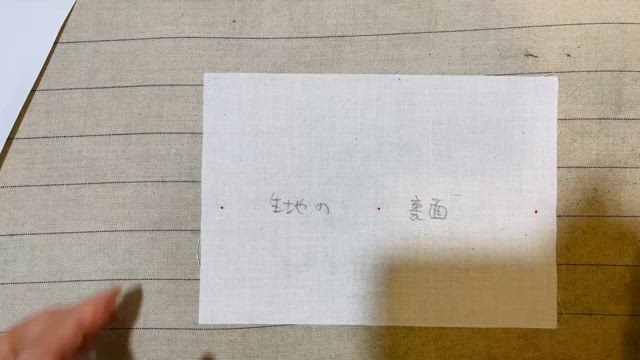 生地の 裏面